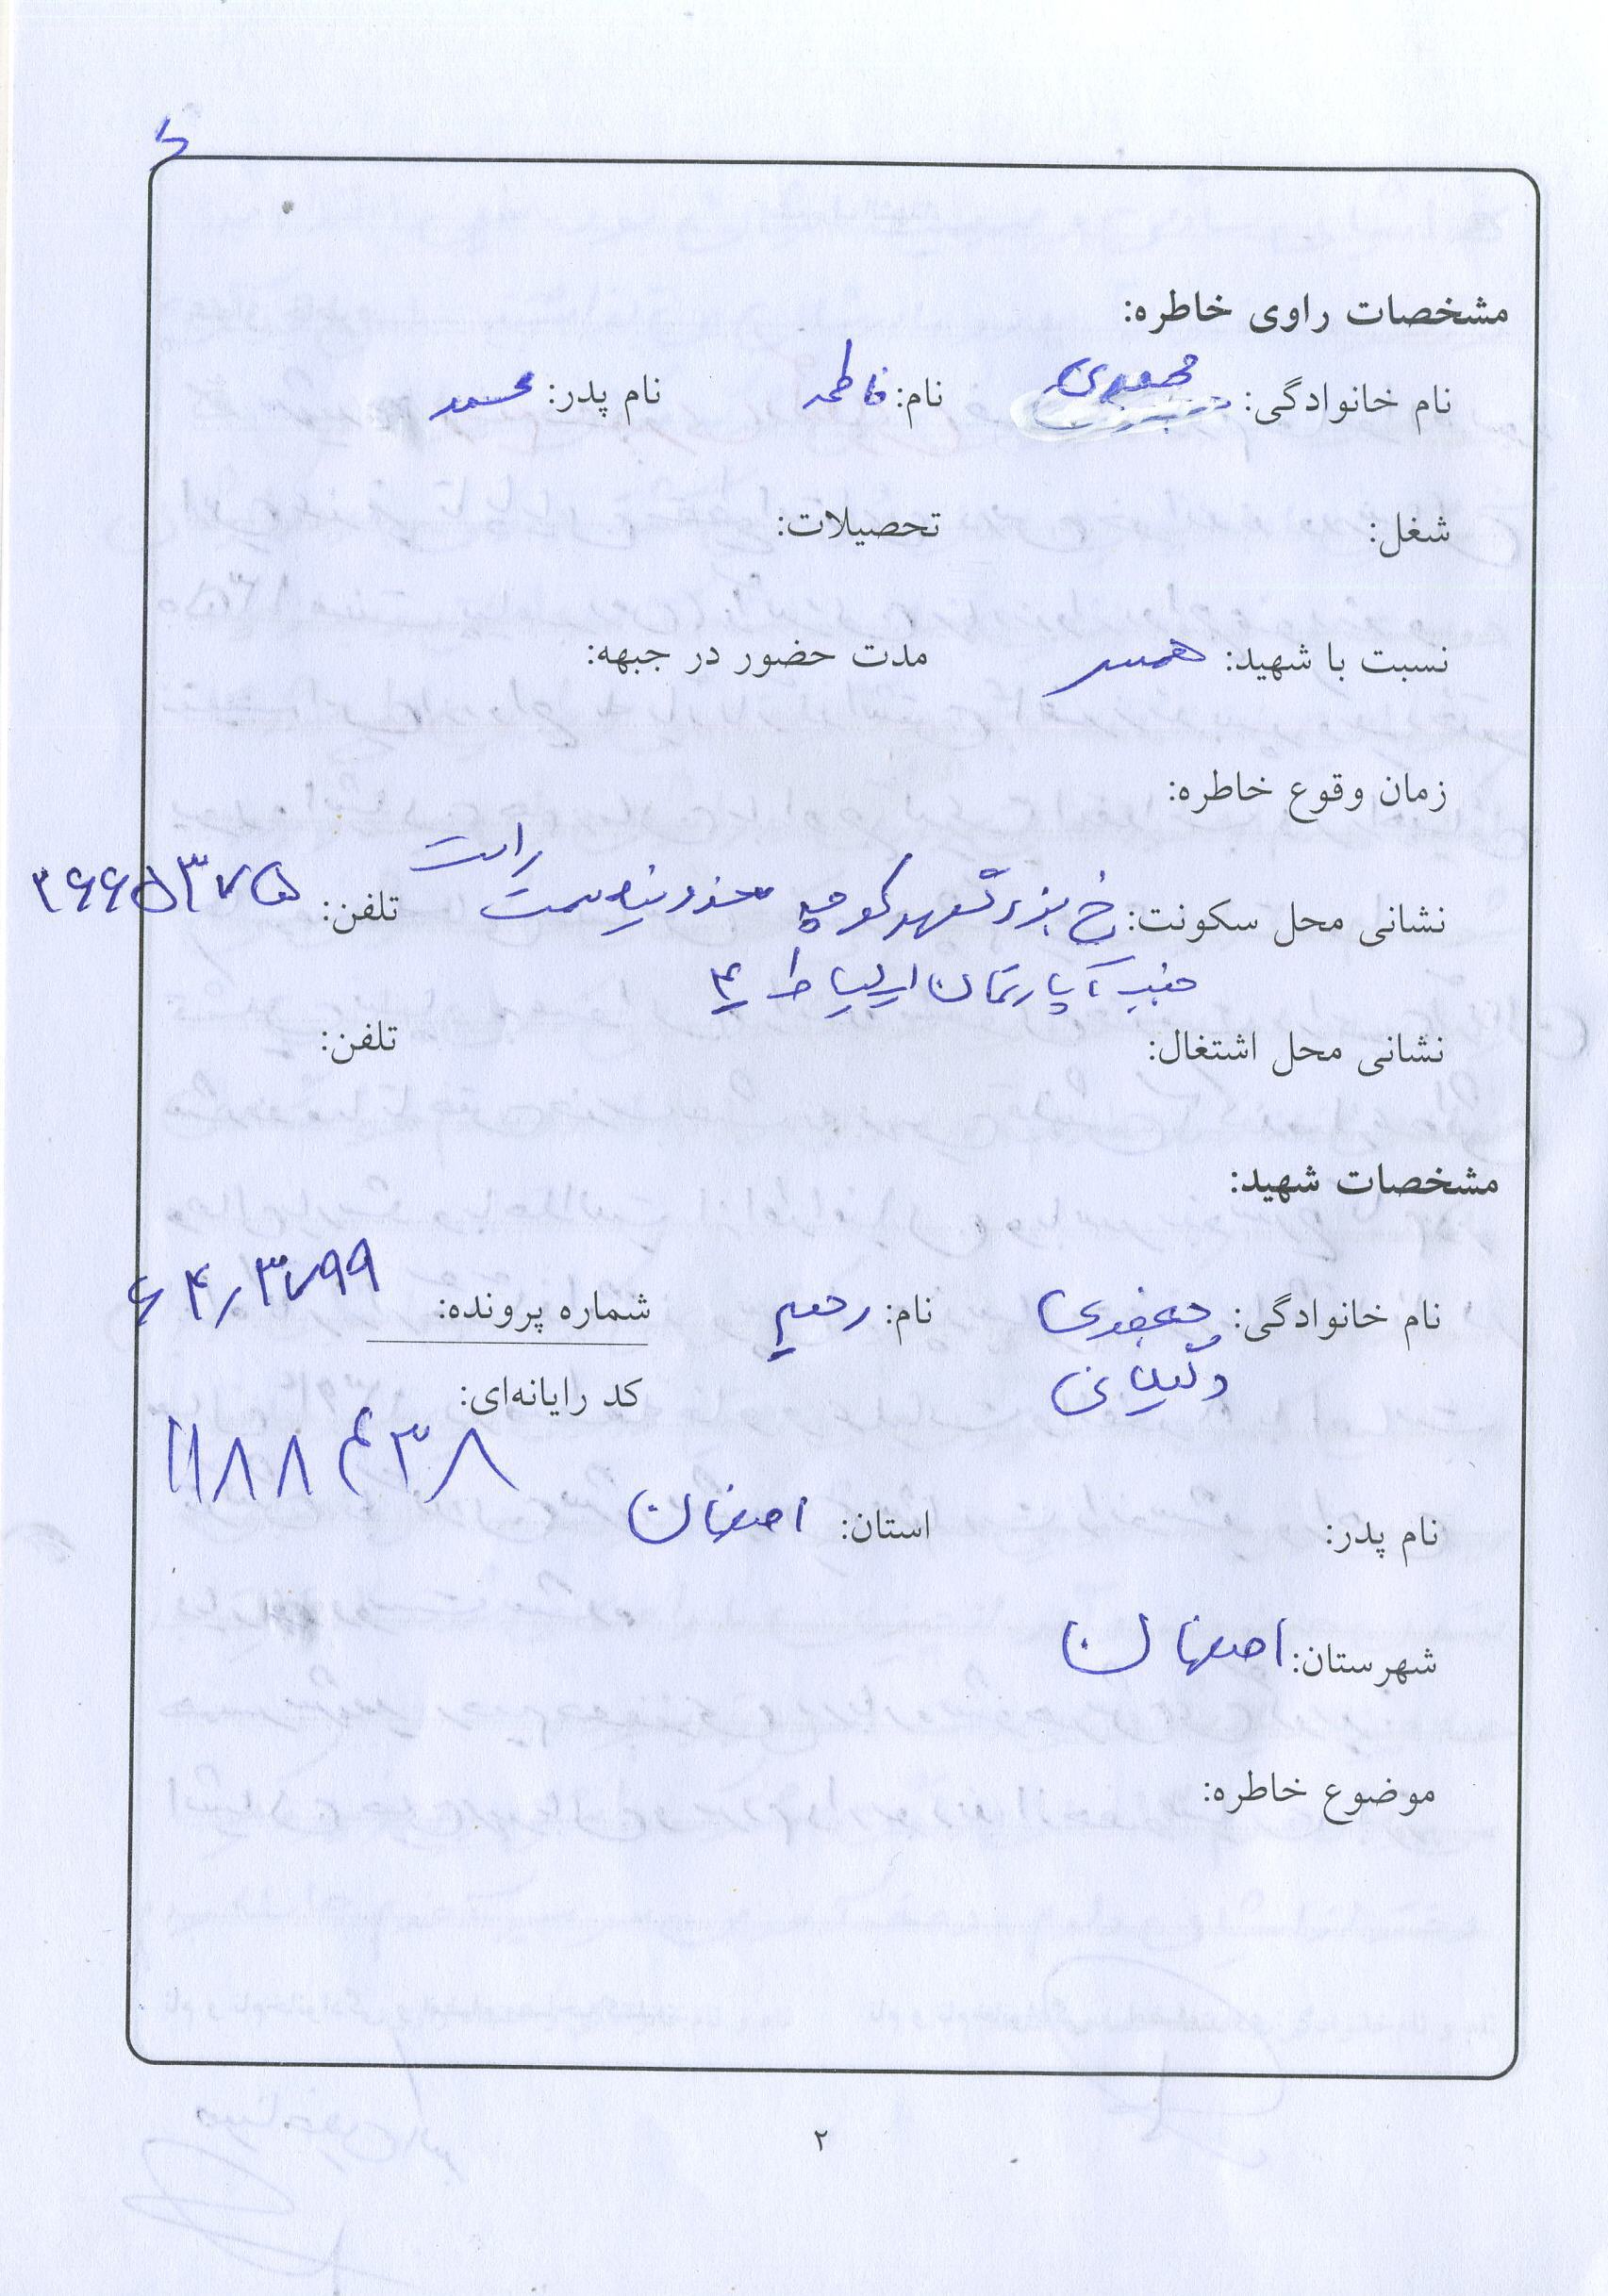 مشخصات راوی خاطره:
نام خانوادگی: نام: فاطمه نام پدر: محمد
شغل: تحصیلات:
نسبت با شهید: همسر مدت حضور در جبهه:
زمان وقوع خاطره:
نشانی محل سکونت: خ بزرگمهر کوچه سمت راست تلفن: ۳۶۶۵۳۷۵
جنب آپارتمان ایلیا ط ۴
نشانی محل اشتغال: تلفن:
مشخصات شهید:
نام خانوادگی: جعفری نام: رحیم شماره پرونده: ۶۴٫۳۷۹۹
کد رایانه‌ای:
نام پدر: استان: اصفهان
شهرستان: اصفهان
موضوع خاطره:
۲